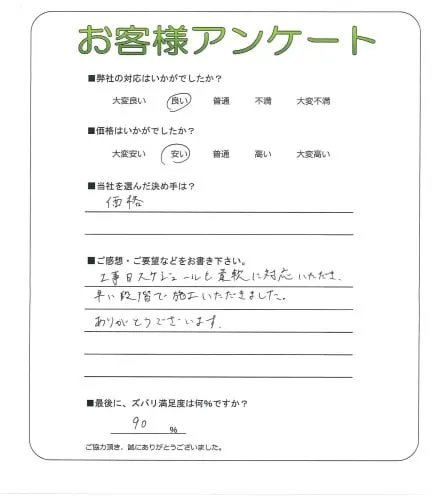 お客様アンケート
■弊社の対応はいかがでしたか？
大変良い 良い 普通 不満 大変不満
■価格はいかがでしたか？
大変安い 安い 普通 高い 大変高い
■当社を選んだ決め手は？
価格
■ご感想・ご要望などをお書き下さい。
工事日スケジュールも柔軟に対応いただき、
早い段階で施工いただきました。
ありがとうございます.
■最後に、ズバリ満足度は何%ですか？
90 %
ご協力頂き、誠にありがとうございました。